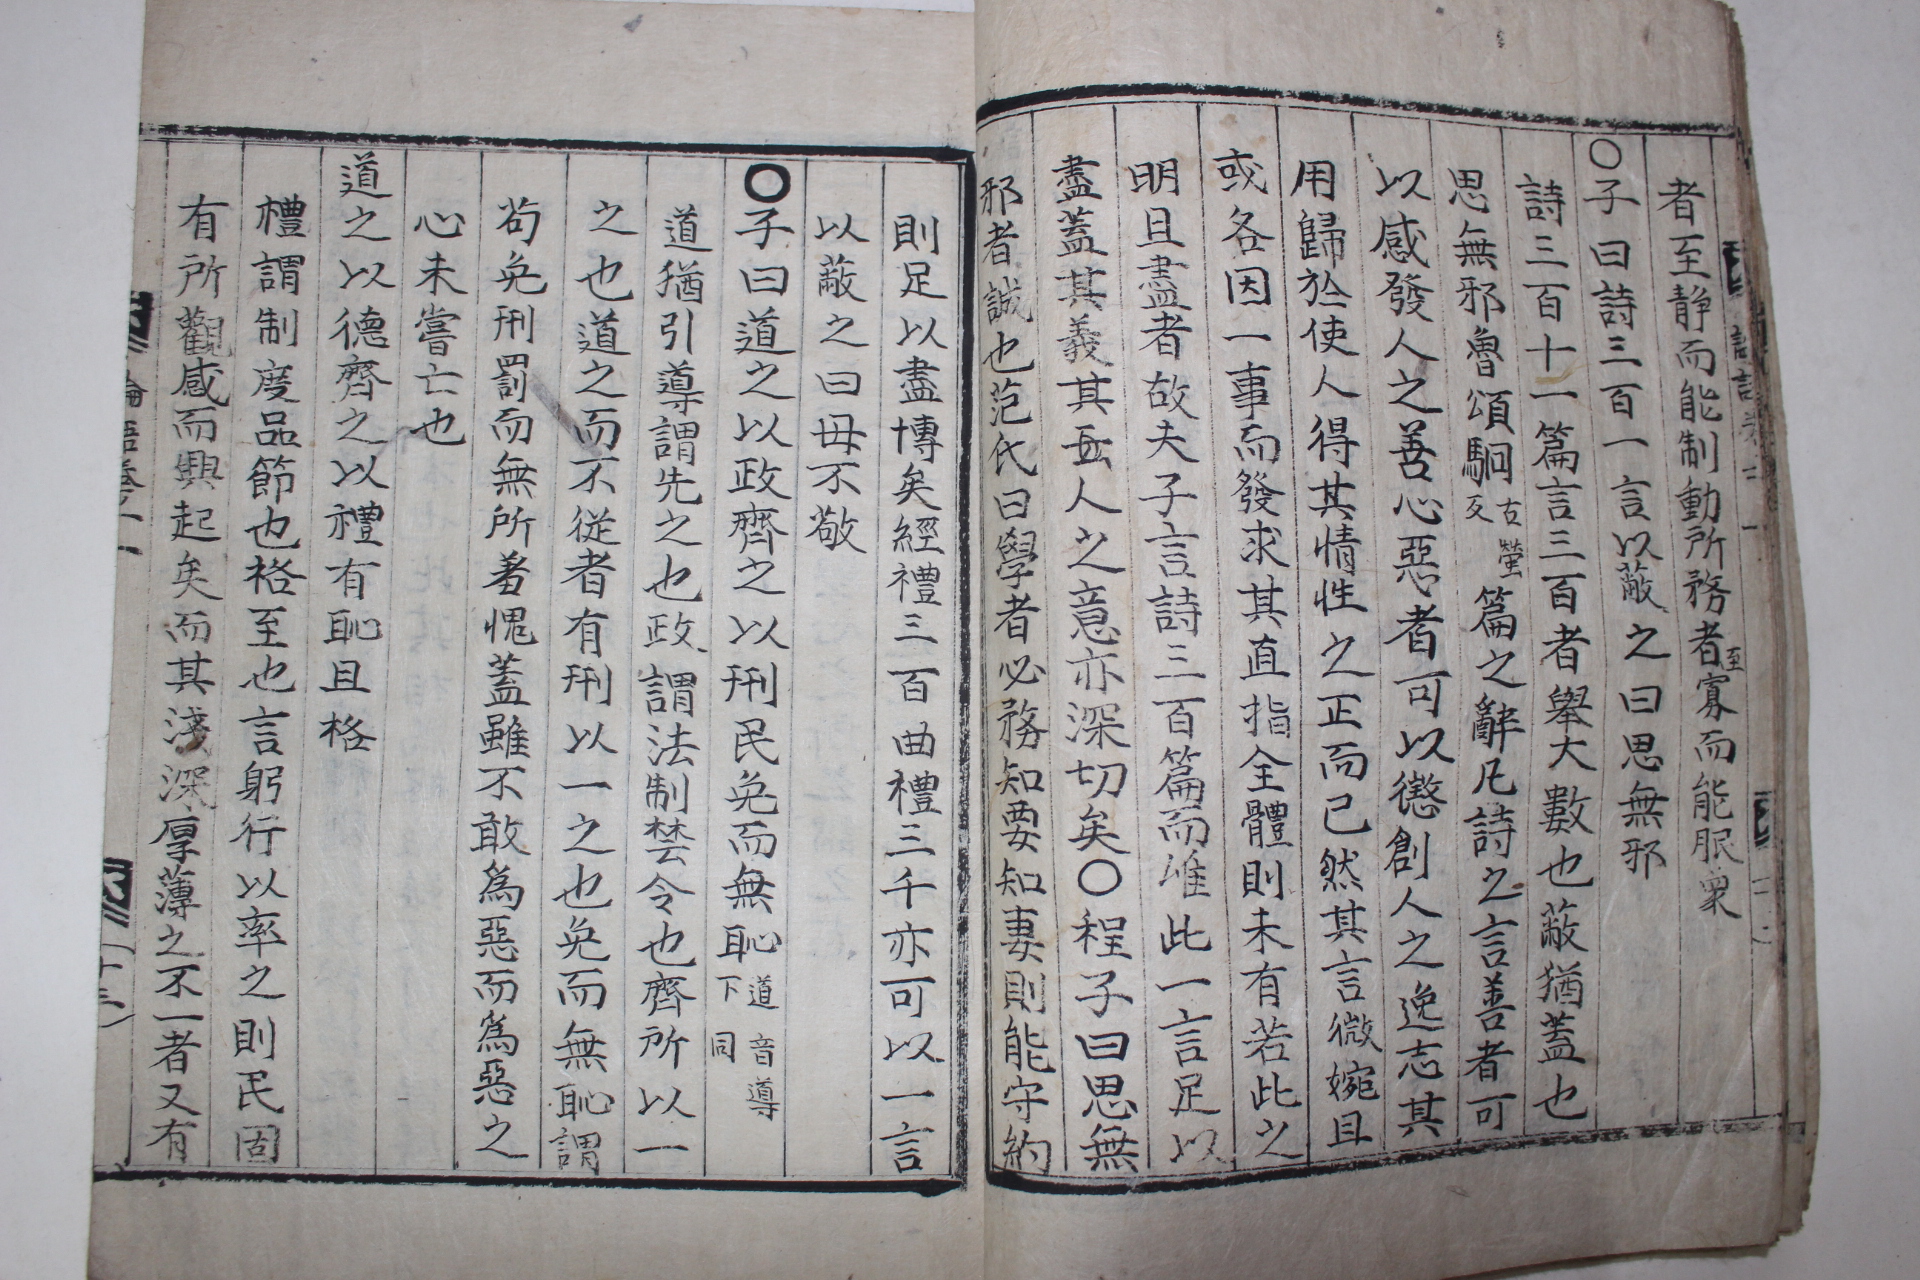 者至静而能制動所務者至寡而能服衆
○子曰詩三百一言以蔽之曰思無邪
詩三百十一篇言三百者舉大數也蔽猶蓋也
思無邪魯頌駉古螢反篇之辭凡詩之言善者可
以感發人之善心惡者可以懲創人之逸志其
用歸於使人得其情性之正而已然其言微婉且
或各因一事而發求其直指全體則未有若此之
明且盡者故夫子言詩三百篇而惟此一言足以
盡蓋其義其𡈽人之意亦深切矣○程子曰思無
邪者誠也范氏曰學者必務知要知要則能守約
則足以盡博矣經禮三百曲禮三千亦可以一言
以蔽之曰毋不敬
○子曰道之以政齊之以刑民免而無恥道音導下同
道猶引導謂先之也政謂法制禁令也齊所以一
之也道之而不從者有刑以一之也免而無恥謂
苟免刑罰而無所羞愧蓋雖不敢爲惡而爲惡之
心未嘗亡也
道之以德齊之以禮有恥且格
禮謂制度品節也格至也言躬行以率之則民固
有所觀感而興起矣而其淺深厚薄之不一者又有
論語卷一
十三